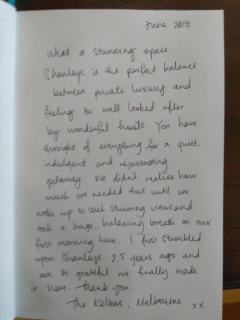 June 2019
What a stunning space.
Shanleys is the perfect balance
between private luxury and
feeling so well looked after
by wonderful hosts. You have
thought of everything for a quiet,
indulgent and rejuvenating
getaway. We didn't realise how
much we needed this until we
woke up to such stunning views and
took a huge, balancing breath on our
first morning here. I first stumbled
upon Shanleys 2.5 years ago and
am so grateful we finally made
it here. Thank you.
The Melbourne xx